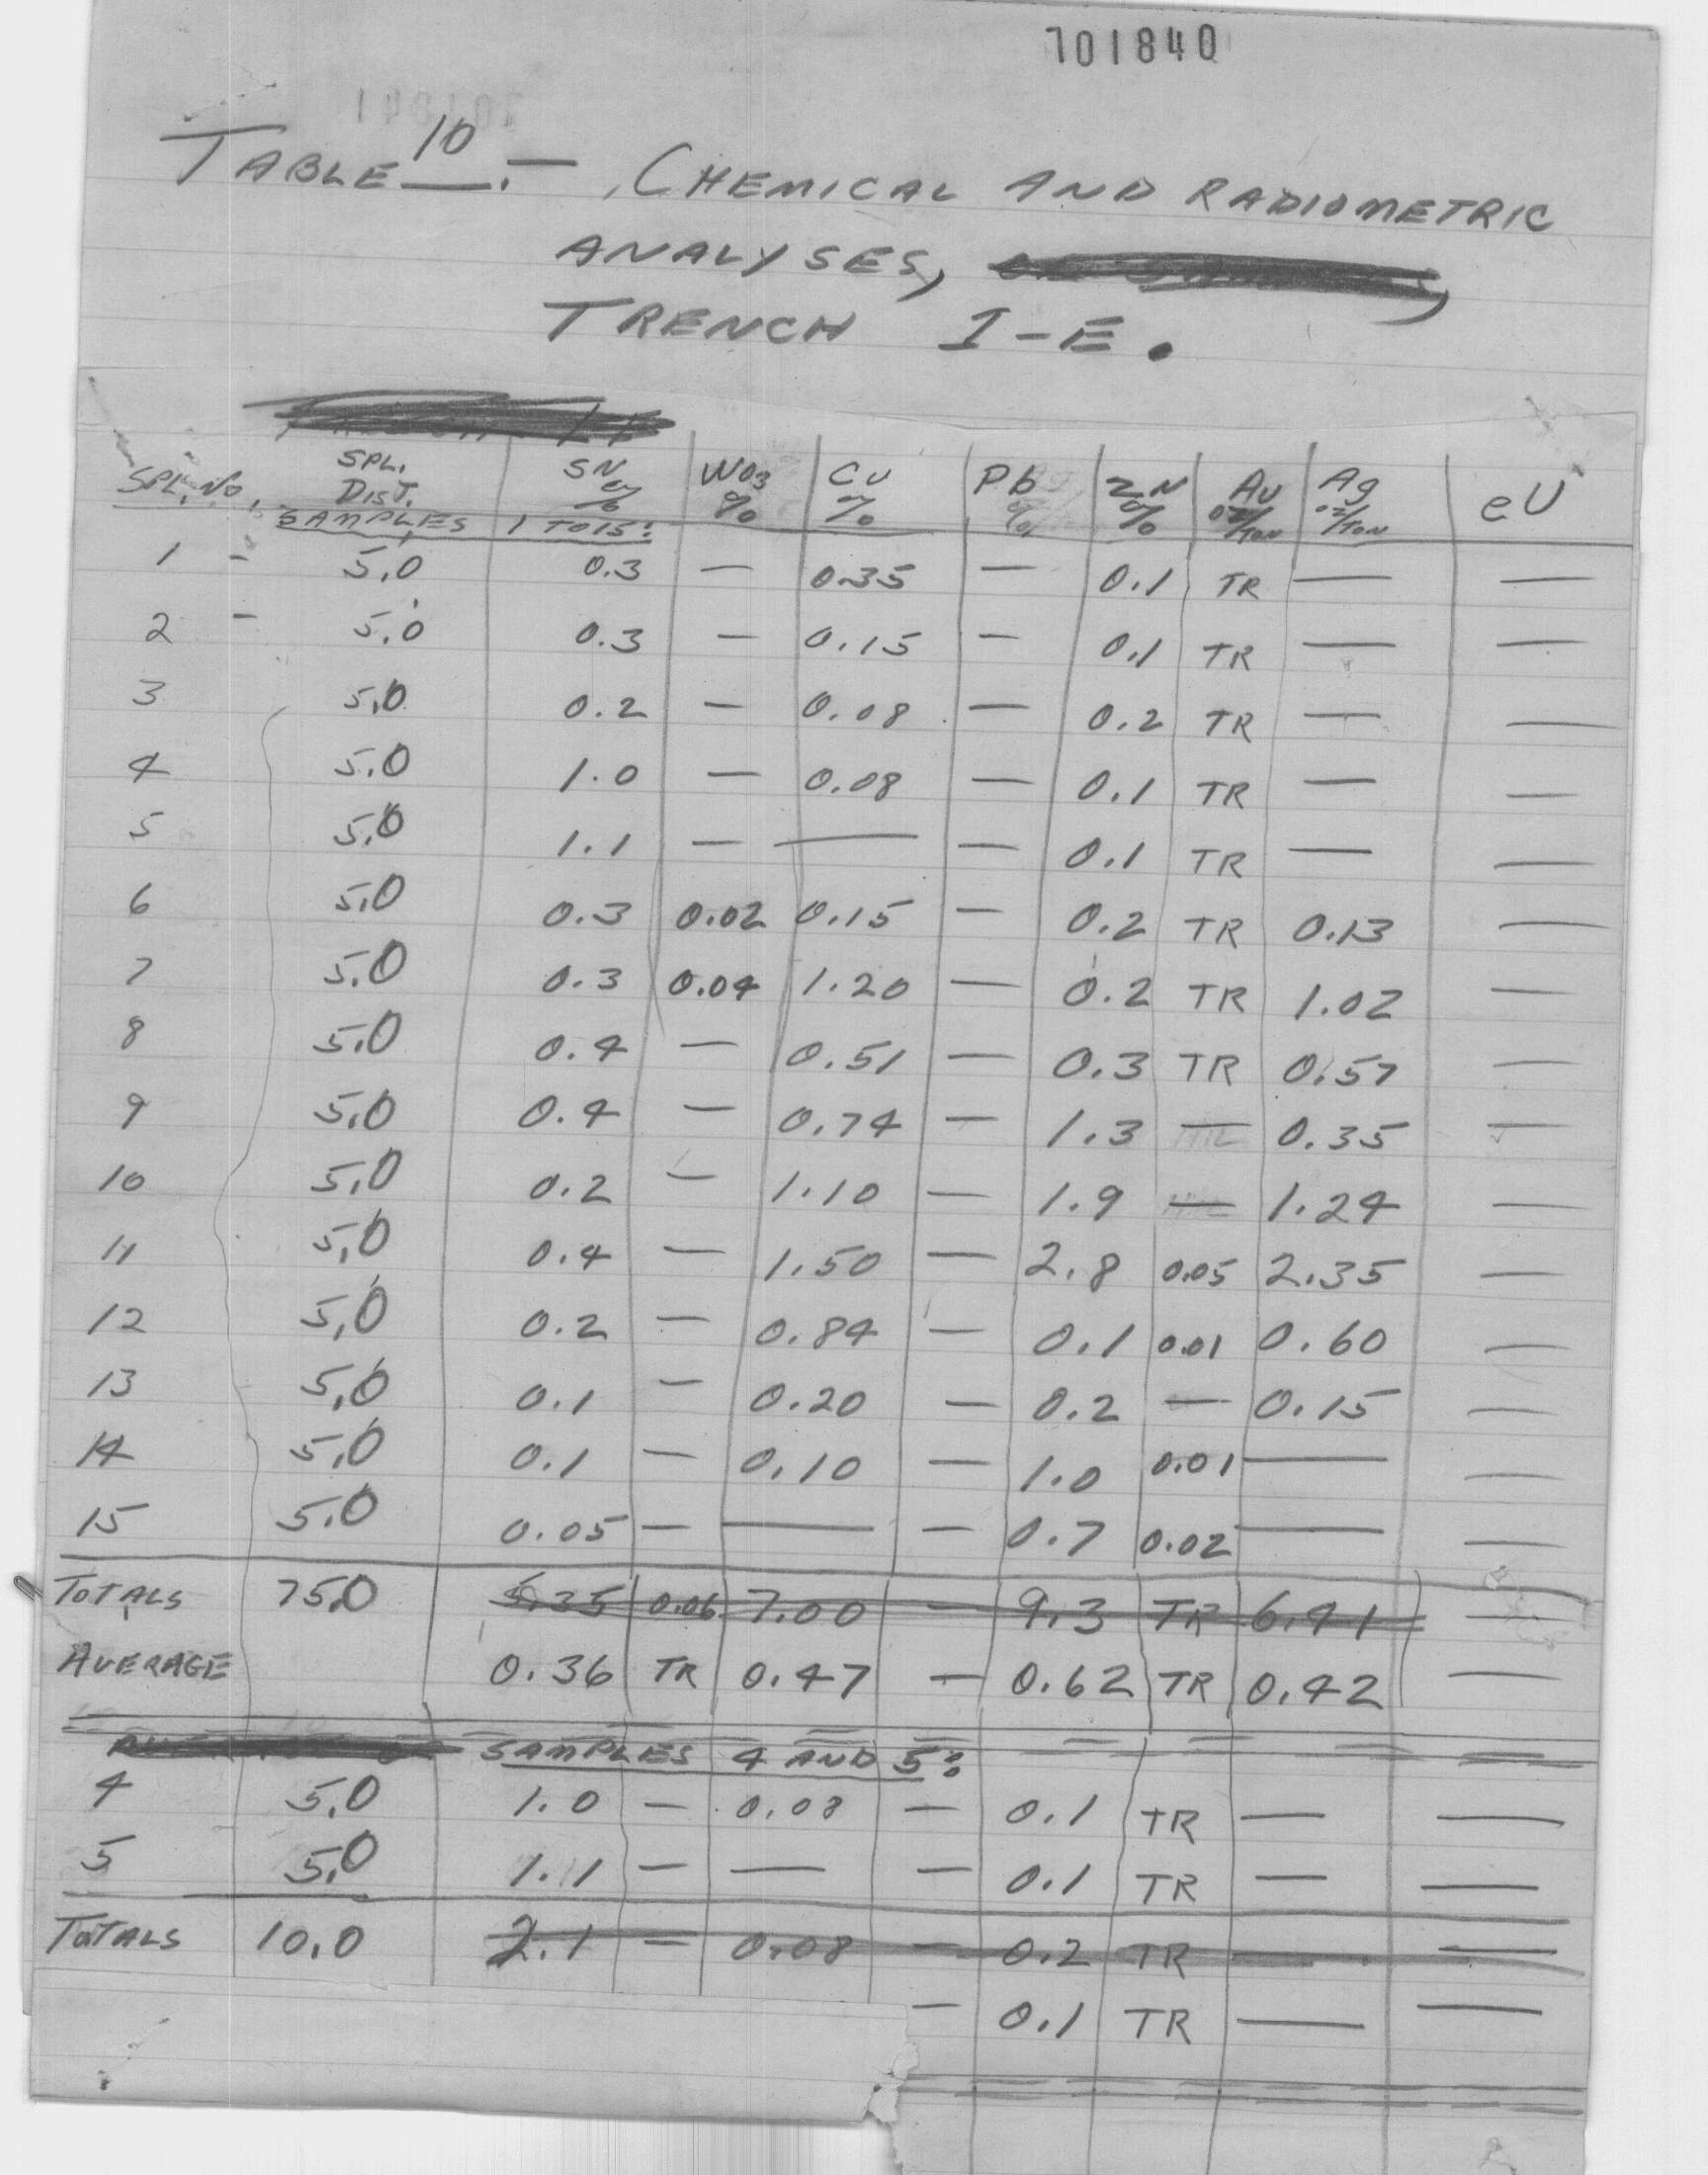 701840
TABLE 10.— CHEMICAL AND RADIOMETRIC
ANALYSES,
TRENCH I-E.
SPL. No. SPL. DIST. SN % WO3 % CU % Pb % ZN % AU oz/TON Ag oz/TON eU
SAMPLES 1 TO 15:
1 - 5.0 0.3 — 0.35 — 0.1 TR — —
2 - 5.0 0.3 — 0.15 — 0.1 TR — —
3 5.0 0.2 — 0.08 — 0.2 TR — —
4 5.0 1.0 — 0.08 — 0.1 TR — —
5 5.0 1.1 — — — 0.1 TR — —
6 5.0 0.3 0.02 0.15 — 0.2 TR 0.13 —
7 5.0 0.3 0.04 1.20 — 0.2 TR 1.02 —
8 5.0 0.4 — 0.51 — 0.3 TR 0.57 —
9 5.0 0.4 — 0.74 — 1.3 — 0.35 —
10 5.0 0.2 — 1.10 — 1.9 — 1.24 —
11 5.0 0.4 — 1.50 — 2.8 0.05 2.35 —
12 5.0 0.2 — 0.84 — 0.1 0.01 0.60 —
13 5.0 0.1 — 0.20 — 0.2 — 0.15 —
14 5.0 0.1 — 0.10 — 1.0 0.01 — —
15 5.0 0.05 — — — 0.7 0.02 — —
TOTALS 75.0 5.35 0.06 7.00 — 9.3 TR 6.41 —
AVERAGE 0.36 TR 0.47 — 0.62 TR 0.42 —
SAMPLES 4 AND 5:
4 5.0 1.0 — 0.08 — 0.1 TR — —
5 5.0 1.1 — — — 0.1 TR — —
TOTALS 10.0 2.1 — 0.08 — 0.2 TR — —
— 0.1 TR — —